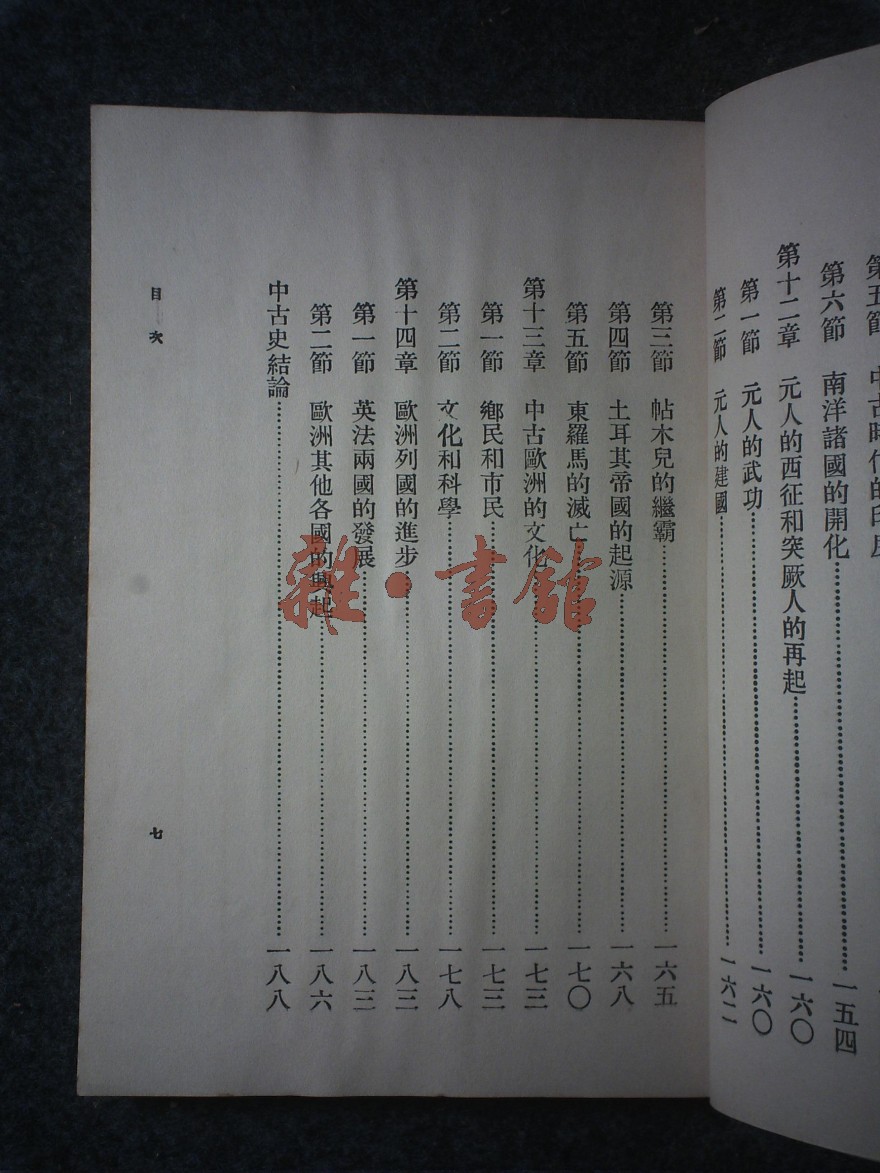 第六節 南洋諸國的開化……一五四
第十二章 元人的西征和突厥人的再起……一六〇
第一節 元人的武功……一六〇
第二節 元人的建國……一六二
第三節 帖木兒的繼霸……一六五
第四節 土耳其帝國的起源……一六八
第五節 東羅馬的滅亡……一七〇
第十三章 中古歐洲的文化……一七三
第一節 鄉民和市民……一七三
第二節 文化和科學……一七八
第十四章 歐洲列國的進步……一八三
第一節 英法兩國的發展……一八三
第二節 歐洲其他各國的興起……一八六
中古史結論……一八八
目次
七
雜·書館